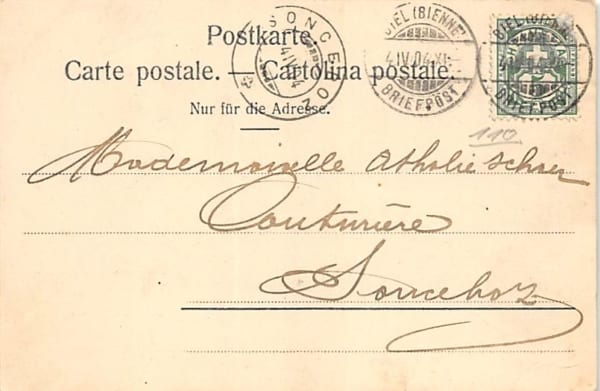 Postkarte.
Carte postale. — Cartolina postale.
Nur für die Adresse.
SONCEBOZ
4 IV 04
BIEL (BIENNE)
4.IV.04.XI-
BRIEFPOST
BIEL (BIENNE)
BRIEFPOST
110
Mademoiselle Athalie Schaer
Couturière
Sonceboz